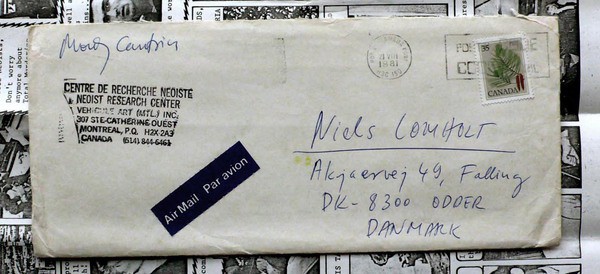 Monty Cantsin
CENTRE DE RECHERCHE NEOISTE
NEOIST RESEARCH CENTER
VEHICULE ART (MTL.) INC.
307 STE-CATHERINE OUEST
MONTREAL, P.Q. H2X 2A3
CANADA (514) 844-6461
35
CANADA
Air Mail Par avion
Niels LOMHOLT
Akjaervej 49, Falling
DK-8300 ODDER
DANMARK
Don't worry
anymore about